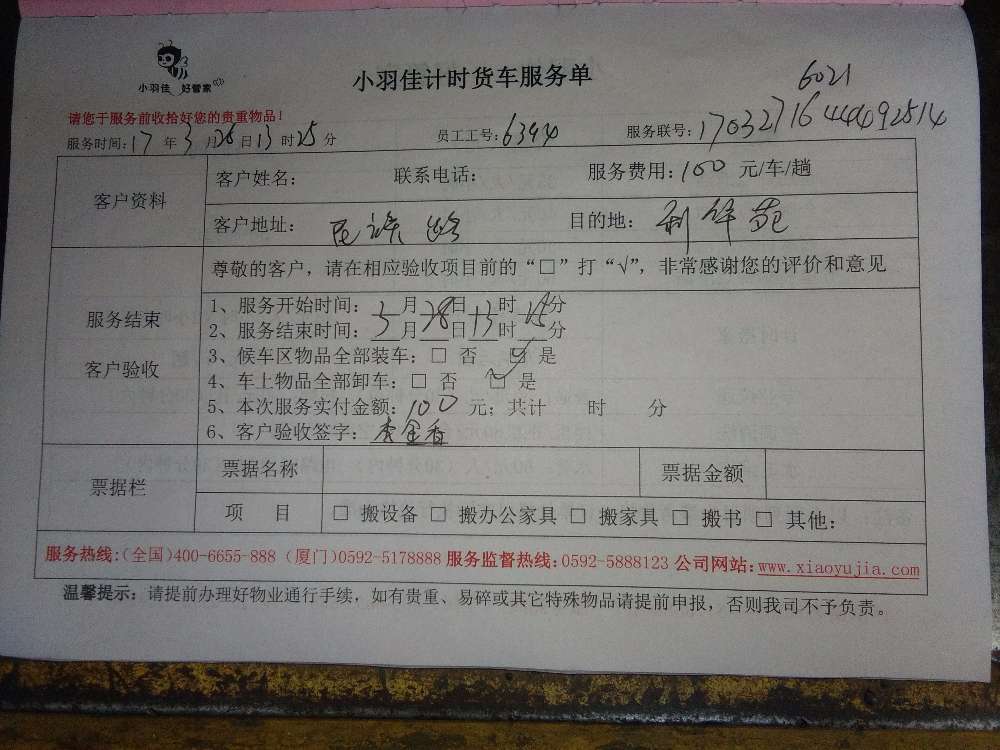 小羽佳 好管家
小羽佳计时货车服务单
6021
请您于服务前收拾好您的贵重物品!
服务时间:17 年 3 月 28 日 13 时 25 分 员工工号:6394 服务联号:
客户资料
客户姓名: 联系电话: 服务费用:100 元/车/趟
客户地址: 目的地:
服务结束
客户验收
尊敬的客户，请在相应验收项目前的“□”打“√”，非常感谢您的评价和意见
1、服务开始时间: 3 月 28 日 13 时 25 分
2、服务结束时间: 3 月 28 日 13 时 25 分
3、候车区物品全部装车:□ 否 □ 是
4、车上物品全部卸车:□ 否 □ 是
5、本次服务实付金额:100 元; 共计 时 分
6、客户验收签字:李金香
票据栏
票据名称 票据金额
项 目 □ 搬设备 □ 搬办公家具 □ 搬家具 □ 搬书 □ 其他:
服务热线:(全国)400-6655-888 (厦门)0592-5178888 服务监督热线:0592-5888123 公司网站:www.xiaoyujia.com
温馨提示: 请提前办理好物业通行手续，如有贵重、易碎或其它特殊物品请提前申报，否则我司不予负责。